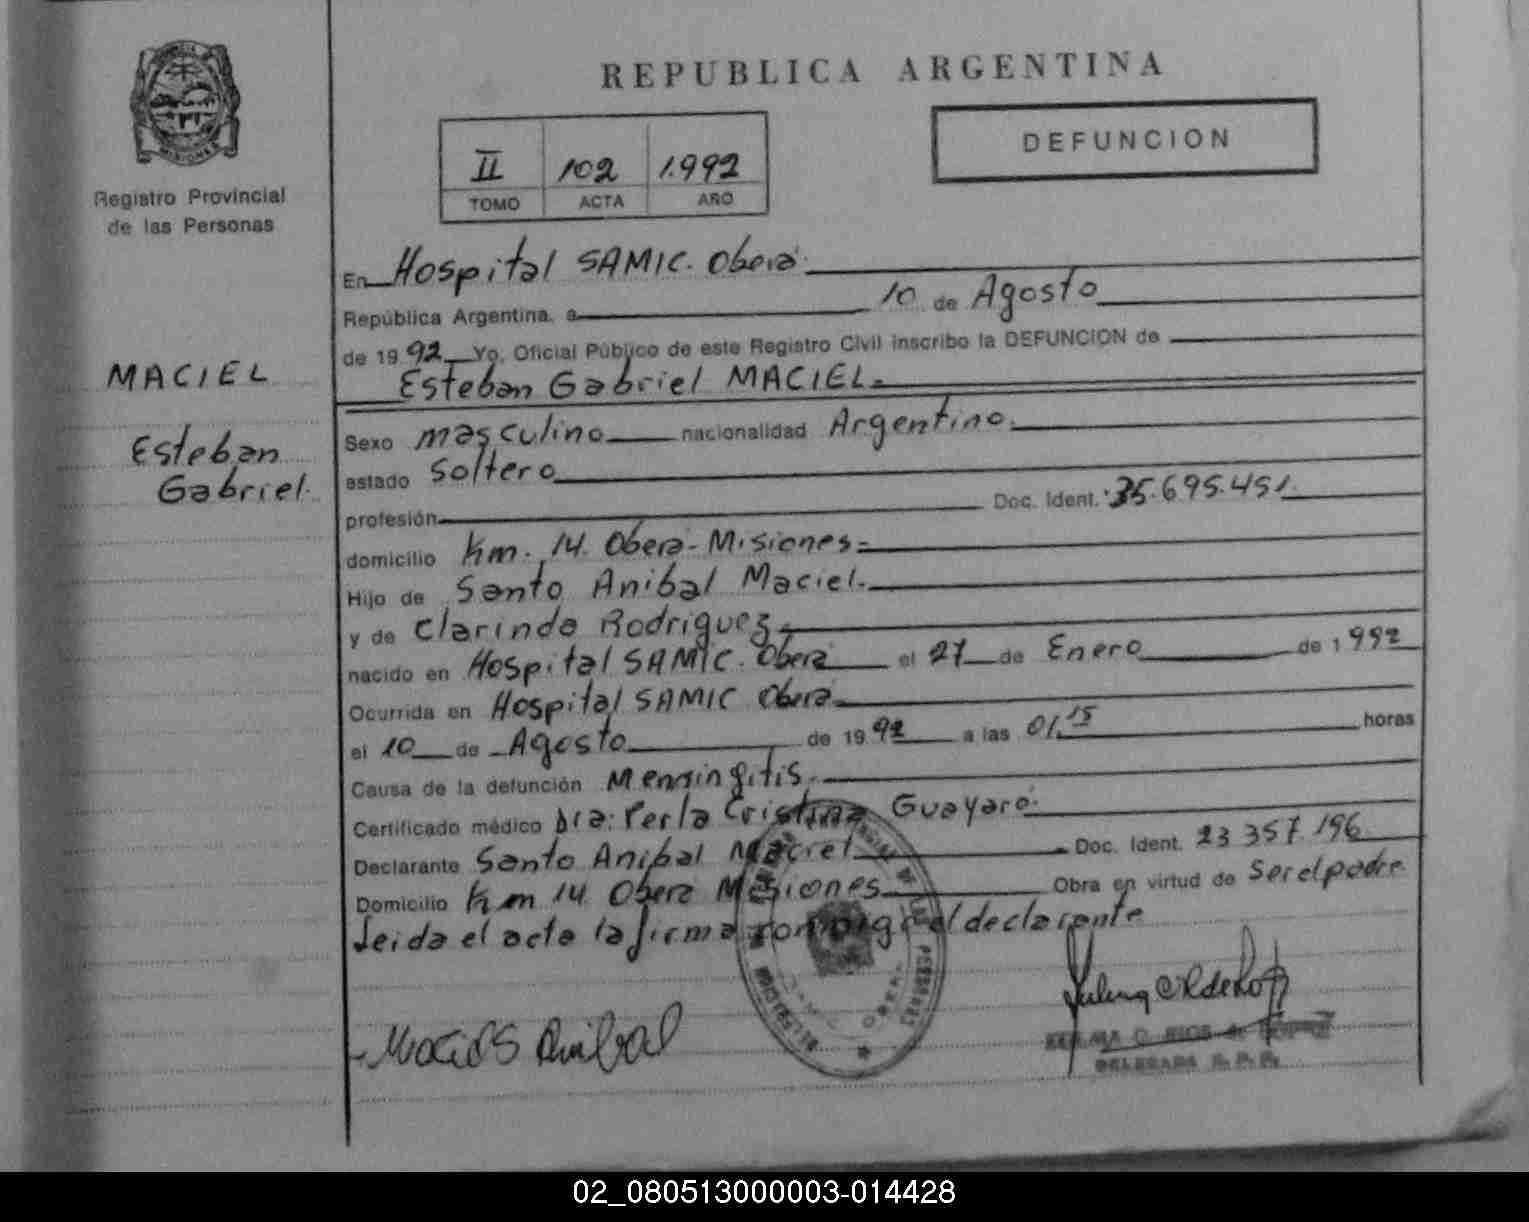 REPUBLICA ARGENTINA
DEFUNCION
II 102 1.992
TOMO ACTA AÑO
MISIONES
Registro Provincial
de las Personas
MACIEL
Esteban
Gabriel.
En Hospital SAMIC. Oberá.
República Argentina, a 10 de Agosto
de 19 92 Yo, Oficial Público de este Registro Civil inscribo la DEFUNCION de
Esteban Gabriel MACIEL.=
Sexo masculino nacionalidad Argentino.
estado Soltero
profesión Doc. Ident. 35.695.451.
domicilio Km. 14. Oberá-Misiones=
Hijo de Santo Anibal Maciel.
y de Clarinda Rodriguez.
nacido en Hospital SAMIC. Oberá el 27 de Enero de 1 992
Ocurrida en Hospital SAMIC Oberá
el 10 de Agosto de 19 92 a las 01,15 horas
Causa de la defunción Menningitis.
Certificado médico Dra: Perla Cristina Guayaró.
Declarante Santo Anibal Maciel Doc. Ident. 23 357.196
Domicilio Km 14 Oberá Misiones Obra en virtud de Ser el padre
Leida el acta la firma conmigo el declarante
Anibal
DELEGADA R. P. P.
02_080513000003-014428